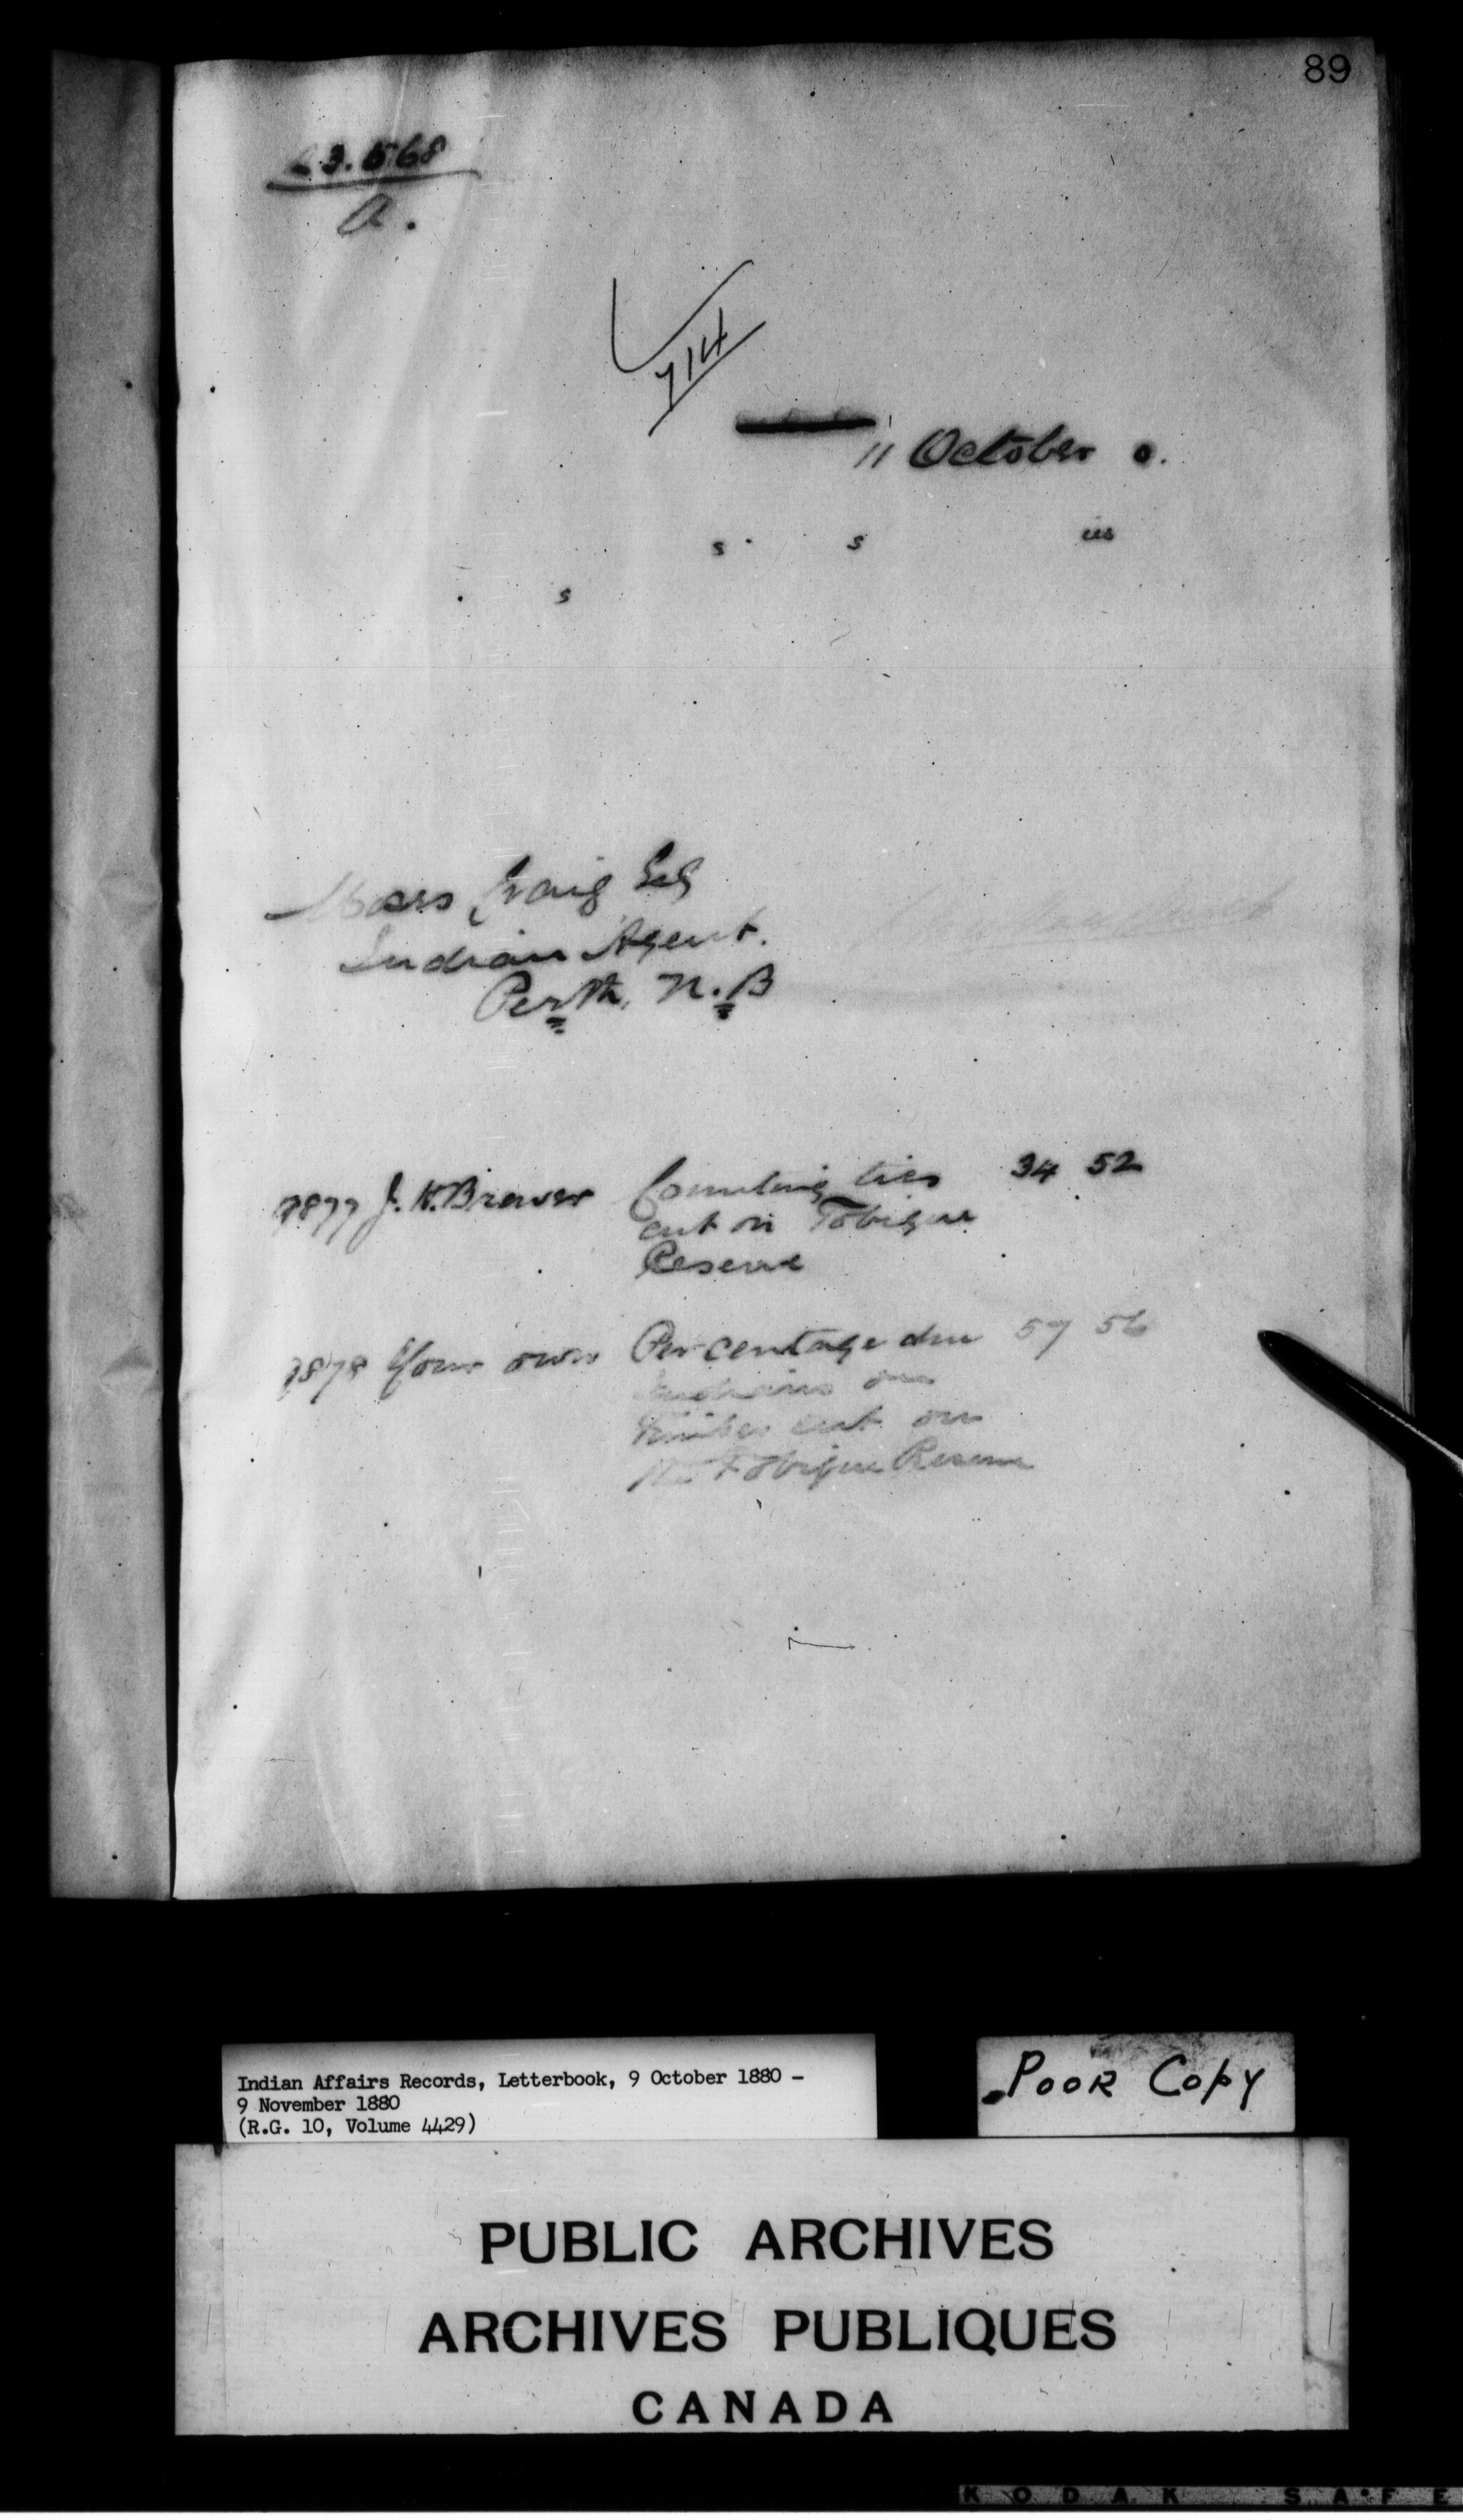 89
23.568
A.
714
11 October 0.
s s us
s
Moses Craig Esq
Indian Agent.
Perth, N.B
9877 J. K. Brewer Counting ties 34 52
cut on Tobique
Reserve
9878 Your own Percentage due 57 56
Indians on
timber cut on
the Tobique Reserve
Indian Affairs Records, Letterbook, 9 October 1880 -
9 November 1880
(R.G. 10, Volume 4429)
Poor Copy
PUBLIC ARCHIVES
ARCHIVES PUBLIQUES
CANADA
KODAK SAFE